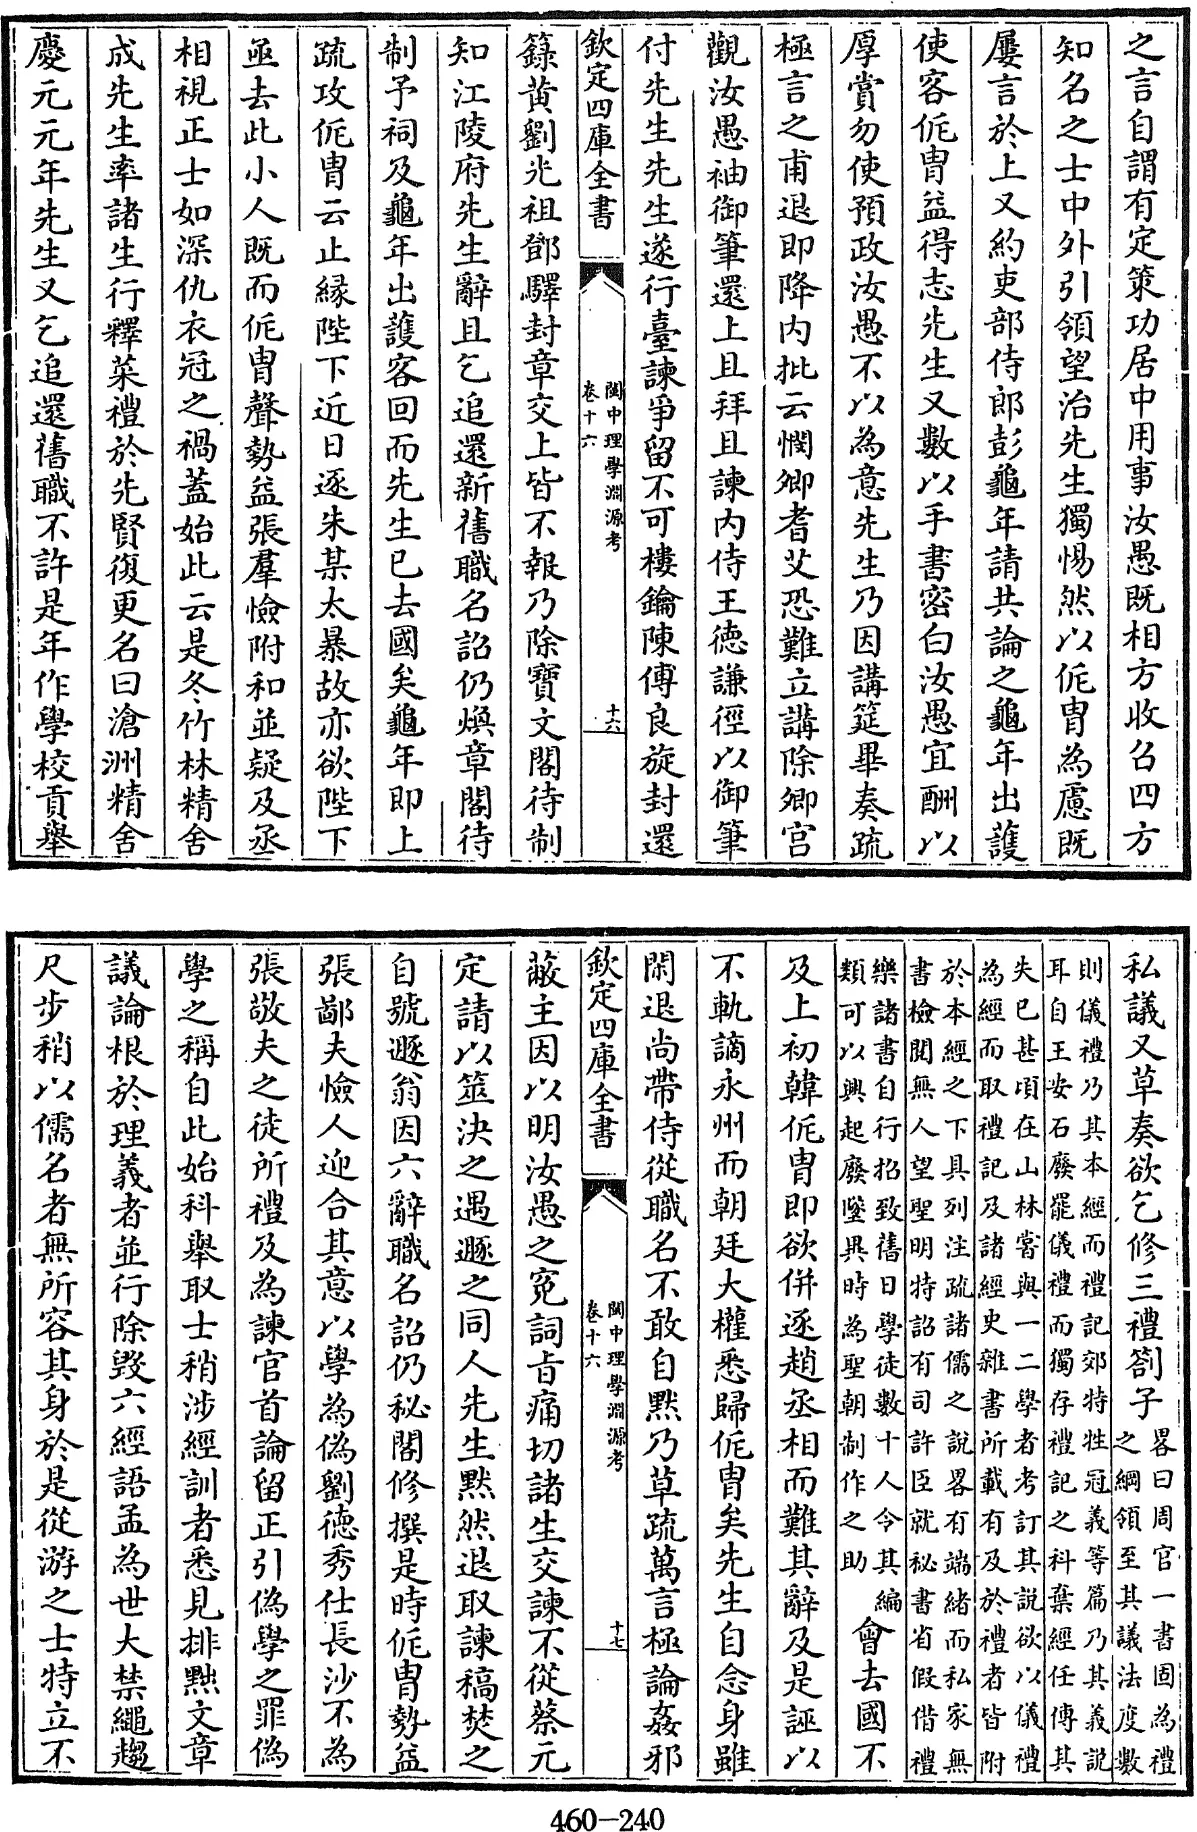 之言自謂有定策功居中用事汝愚既相方收召四方
知名之士中外引領望治先生獨惕然以侂胄為慮既
屢言於上又約吏部侍郎彭龜年請共論之龜年出護
使客侂胄益得志先生又數以手書密白汝愚宜酬以
厚賞勿使預政汝愚不以為意先生乃因講筵畢奏疏
極言之甫退即降内批云憫卿耆艾恐難立講除卿宫
觀汝愚袖御筆還上且拜且諫内侍王德謙徑以御筆
付先生先生遂行臺諫爭留不可樓鑰陳傅良旋封還
欽定四庫全書
閩中理學淵源考
卷十六
十六
籙黄劉光祖鄧驛封章交上皆不報乃除寶文閣待制
知江陵府先生辭且乞追還新舊職名詔仍煥章閣待
制予祠及龜年出護客回而先生已去國矣龜年即上
疏攻侂胄云止緣陛下近日逐朱某太暴故亦欲陛下
亟去此小人既而侂胄聲勢益張羣憸附和並疑及丞
相視正士如深仇衣冠之禍蓋始此云是冬竹林精舍
成先生率諸生行釋菜禮於先賢復更名曰滄洲精舍
慶元元年先生又乞追還舊職不許是年作學校貢舉
私議又草奏欲乞修三禮劄子
畧曰周官一書固為禮
之綱領至其議法度數
則儀禮乃其本經而禮記郊特牲冠義等篇乃其義説
耳自王安石廢罷儀禮而獨存禮記之科棄經任傳其
失已甚頃在山林嘗與一二學者考訂其説欲以儀禮
為經而取禮記及諸經史雜書所載有及於禮者皆附
於本經之下具列注疏諸儒之説畧有端緒而私家無
書檢閲無人望聖明特詔有司許臣就秘書省假借禮
樂諸書自行招致舊日學徒數十人令其編
類可以興起廢墜異時為聖朝制作之助
會去國不
及上初韓侂胄即欲併逐趙丞相而難其辭及是誣以
不軌謫永州而朝廷大權悉歸侂胄矣先生自念身雖
閑退尚帶侍從職名不敢自默乃草疏萬言極論姦邪
欽定四庫全書
閩中理學淵源考
卷十六
十七
蔽主因以明汝愚之寃詞㫖痛切諸生交諫不從蔡元
定請以筮決之遇遯之同人先生黙然退取諫稿焚之
自號遯翁因六辭職名詔仍秘閣修撰是時侂胄勢益
張鄙夫憸人迎合其意以學為偽劉德秀仕長沙不為
張敬夫之徒所禮及為諫官首論留正引偽學之罪偽
學之稱自此始科舉取士稍涉經訓者悉見排黜文章
議論根於理義者並行除毁六經語孟為世大禁繩趨
尺步稍以儒名者無所容其身於是從游之士特立不
460-240